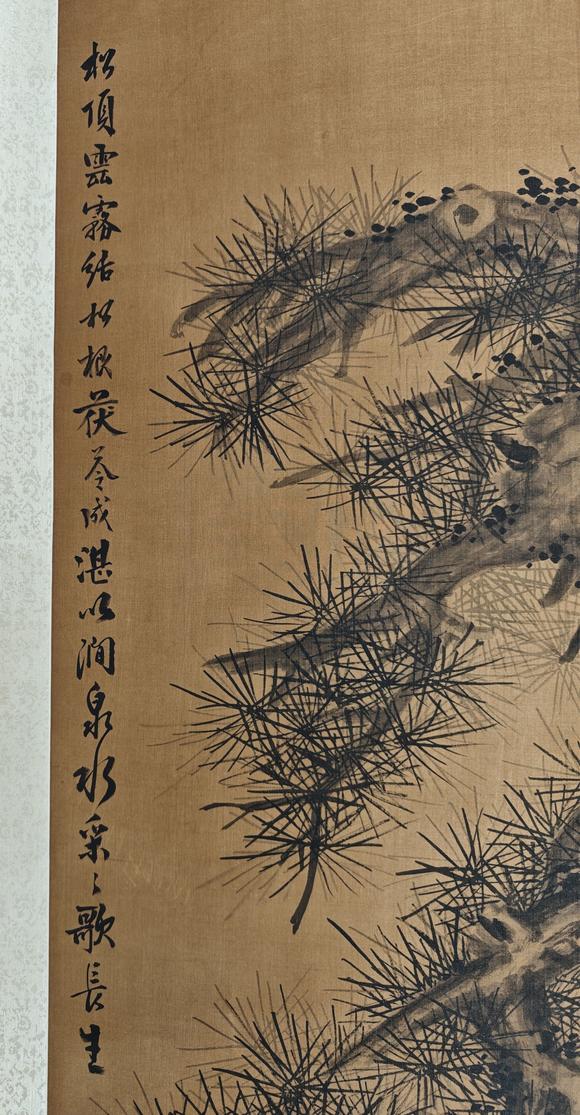 松頂雲霧結松根茯苓成湛以澗泉水采〻歌長生